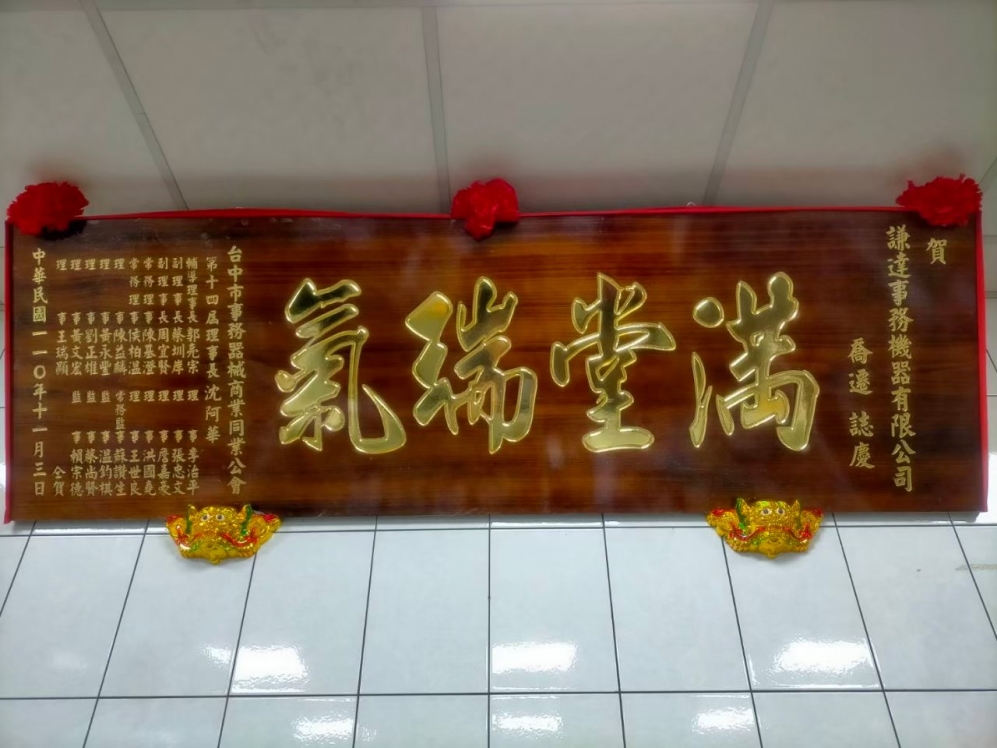 賀
謙達事務機器有限公司
喬遷 誌慶
滿堂瑞氣
台中市事務器械商業同業公會
第十四屆理事長沈阿華
輔導理事長郭堯宗 理事李治平
副理事長蔡圳岸 理事張忠文
副理事長周宜賢 理事詹嘉豪
常務理事陳基澄 理事洪國堯
常務理事侯柏溫 理事王世良
理事陳益麟 常務監事蘇讚生
理事黃永豐 監事溫鈞棋
理事劉正雄 監事蔡尚賢
理事黃文宏 監事賴宗德
理事王瑞顯 仝賀
中華民國一一0年十一月三日